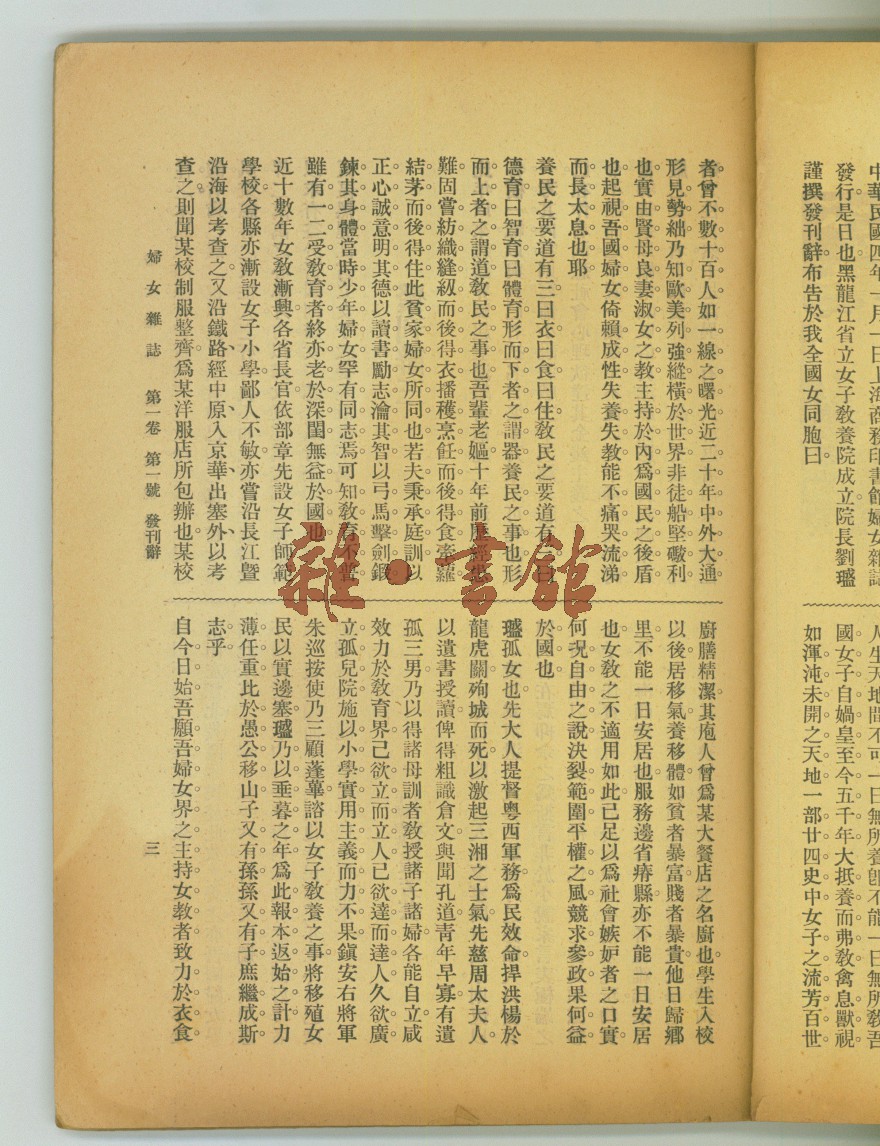 中華民國四年一月一日上海商務印書館婦女雜誌
發行是日也黑龍江省立女子教養院成立院長劉瑿
謹撰發刊辭布告於我全國女同胞曰
人生天地間不可一日無所養卽不能一日無所教吾
國女子自媧皇至今五千年大抵養而弗教禽息獸視
如渾沌未開之天地一部廿四史中女子之流芳百世
者曾不數十百人如一線之曙光近二十年中外大通
形見勢絀乃知歐美列強縱橫於世界非徒船堅礮利
也實由賢母良妻淑女之教主持於內爲國民之後盾
也起視吾國婦女倚賴成性失養失教能不痛哭流涕
而長太息也耶
養民之要道有三曰衣曰食曰住教民之要道有三曰
德育曰智育曰體育形而下者之謂器養民之事也形
而上者之謂道教民之事也吾輩老嫗十年前歷經患
難固嘗紡織縫紉而後得衣播穫烹飪而後得食牽蘿
結茅而後得住此貧家婦女所同也若夫秉承庭訓以
正心誠意明其德以讀書勵志瀹其智以弓馬擊劍鍛
鍊其身體當時少年婦女罕有同志焉可知教育不普
雖有一二受教育者終亦老於深閨無益於國也
近十數年女教漸興各省長官依部章先設女子師範
學校各縣亦漸設女子小學鄙人不敏亦嘗沿長江曁
沿海以考查之又沿鐵路經中原入京華出塞外以考
查之則聞某校制服整齊爲某洋服店所包辦也某校
廚膳精潔其庖人曾爲某大餐店之名廚也學生入校
以後居移氣養移體如貧者暴富賤者暴貴他日歸鄕
里不能一日安居也服務邊省瘠縣亦不能一日安居
也女教之不適用如此已足以爲社會嫉妒者之口實
何況自由之說決裂範圍平權之風競求參政果何益
於國也
瑿孤女也先大人提督粵西軍務爲民效命捍洪楊於
龍虎關殉城而死以激起三湘之士氣先慈周太夫人
以遺書授讀俾得粗識倉文與聞孔道靑年早寡有遺
孤三男乃以得諸母訓者敎授諸子諸婦各能自立咸
效力於敎育界己欲立而立人己欲達而達人久欲廣
立孤兒院施以小學實用主義而力不果鎭安右將軍
朱巡按使乃三顧蓬蓽諮以女子敎養之事將移殖女
民以實邊塞瑿乃以垂暮之年爲此報本返始之計力
薄任重比於愚公移山子又有孫孫又有子庶繼成斯
志乎
自今日始吾願吾婦女界之主持女教者致力於衣食
婦女雜誌 第一卷 第一號 發刊辭
三
雜·書館